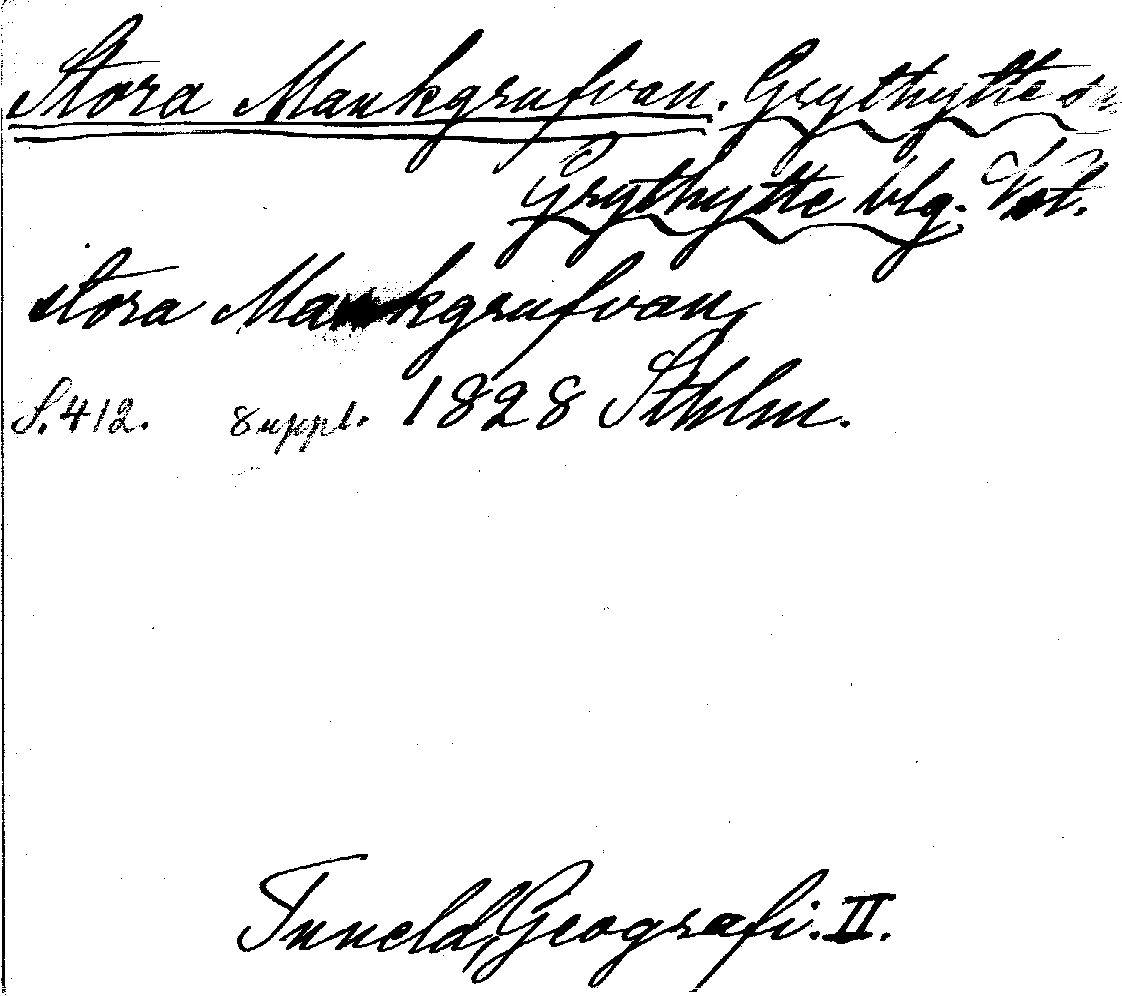 Stora Mankgrufvan. Grythytte sn
Grythytte blg. Vstl.
stora Mankgrufvan,
S. 412. Suppl. 1828 Sthlm.
Tuneld, Geografi. II.